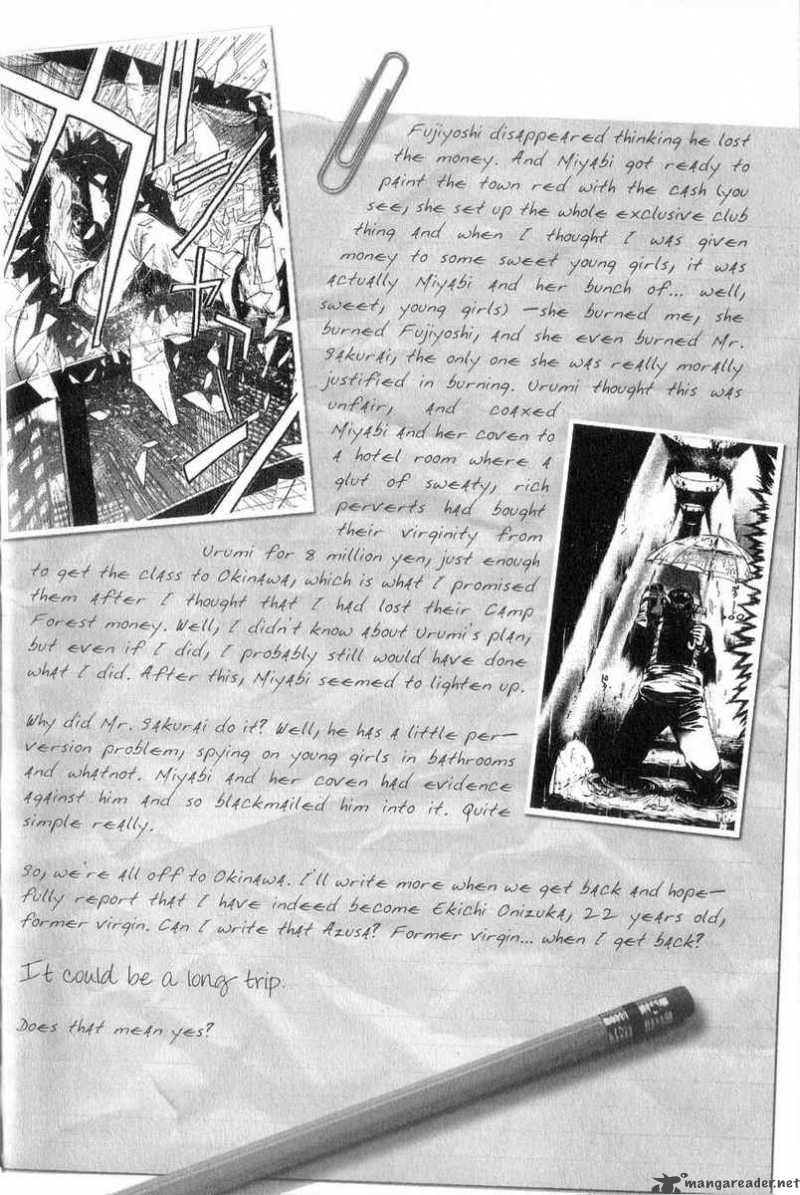 Fujiyoshi disappeared thinking he lost
the money. And Miyabi got ready to
paint the town red with the cash (you
see, she set up the whole exclusive club
thing and when I thought I was given
money to some sweet young girls, it was
actually Miyabi and her bunch of... well,
sweet, young girls) —she burned me, she
burned Fujiyoshi, and she even burned Mr.
Sakurai, the only one she was really morally
justified in burning. Urumi thought this was
unfair, and coaxed
Miyabi and her coven to
a hotel room where a
glut of sweaty, rich
perverts had bought
their virginity from
Urumi for 8 million yen, just enough
to get the class to Okinawa, which is what I promised
them after I thought that I had lost their Camp
Forest money. Well, I didn't know about Urumi's plan,
but even if I did, I probably still would have done
what I did. After this, Miyabi seemed to lighten up.
Why did Mr. Sakurai do it? Well, he has a little per—
version problem, spying on young girls in bathrooms
and whatnot. Miyabi and her coven had evidence
against him and so blackmailed him into it. Quite
simple really.
So, we're all off to Okinawa. I'll write more when we get back and hope—
fully report that I have indeed become Ekichi Onizuka, 22 years old,
former virgin. Can I write that Azusa? Former virgin... when I get back?
It could be a long trip.
Does that mean yes?
mangareader.net